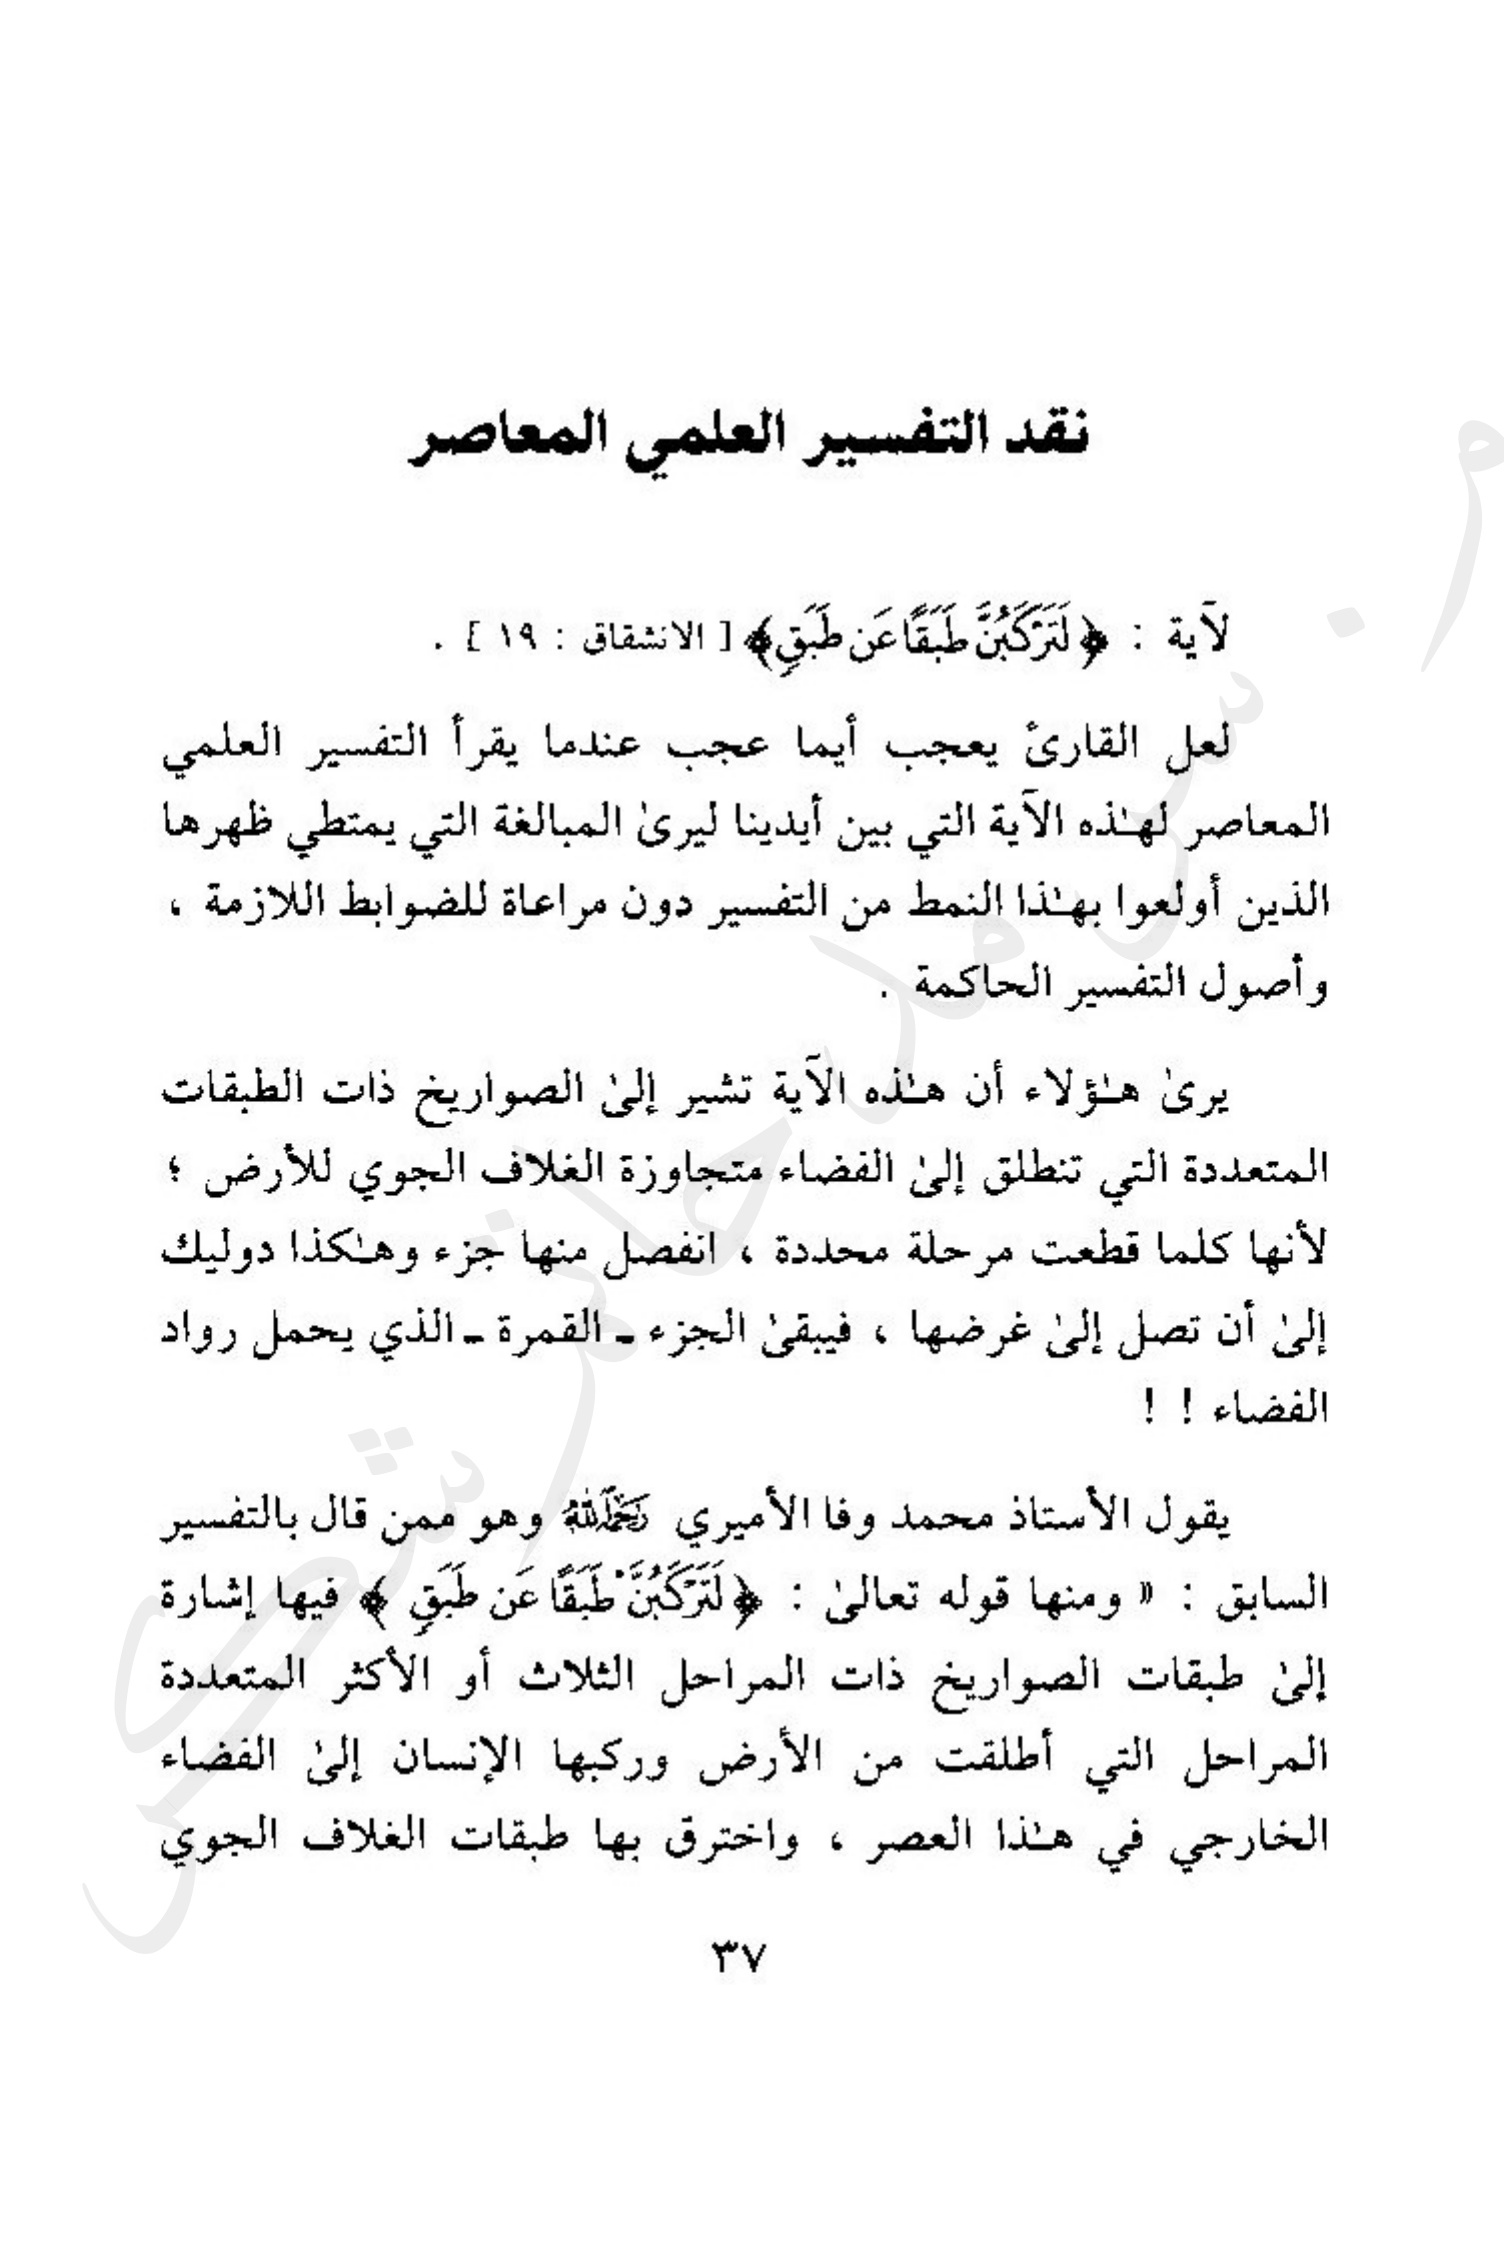 نقد التفسير العلمي المعاصر
لآية : ﴿ لَتَرْكَبُنَّ طَبَقًا عَن طَبَقٍ ﴾ [ الانشقاق : ١٩ ] .
لعل القارئ يعجب أيما عجب عندما يقرأ التفسير العلمي
المعاصر لهـٰذه الآية التي بين أيدينا ليرىٰ المبالغة التي يمتطي ظهرها
الذين أولعوا بهـٰذا النمط من التفسير دون مراعاة للضوابط اللازمة ،
وأصول التفسير الحاكمة .
يرىٰ هـٰؤلاء أن هـٰذه الآية تشير إلىٰ الصواريخ ذات الطبقات
المتعددة التي تنطلق إلىٰ الفضاء متجاوزة الغلاف الجوي للأرض ؛
لأنها كلما قطعت مرحلة محددة ، انفصل منها جزء وهـٰكذا دوليك
إلىٰ أن تصل إلىٰ غرضها ، فيبقىٰ الجزء ـ القمرة ـ الذي يحمل رواد
الفضاء ! !
يقول الأستاذ محمد وفا الأميري رَحِمَهُ ٱللَّهُ وهو ممن قال بالتفسير
السابق : « ومنها قوله تعالىٰ : ﴿ لَتَرْكَبُنَّ طَبَقًا عَن طَبَقٍ ﴾ فيها إشارة
إلىٰ طبقات الصواريخ ذات المراحل الثلاث أو الأكثر المتعددة
المراحل التي أطلقت من الأرض وركبها الإنسان إلىٰ الفضاء
الخارجي في هـٰذا العصر ، واخترق بها طبقات الغلاف الجوي
٣٧